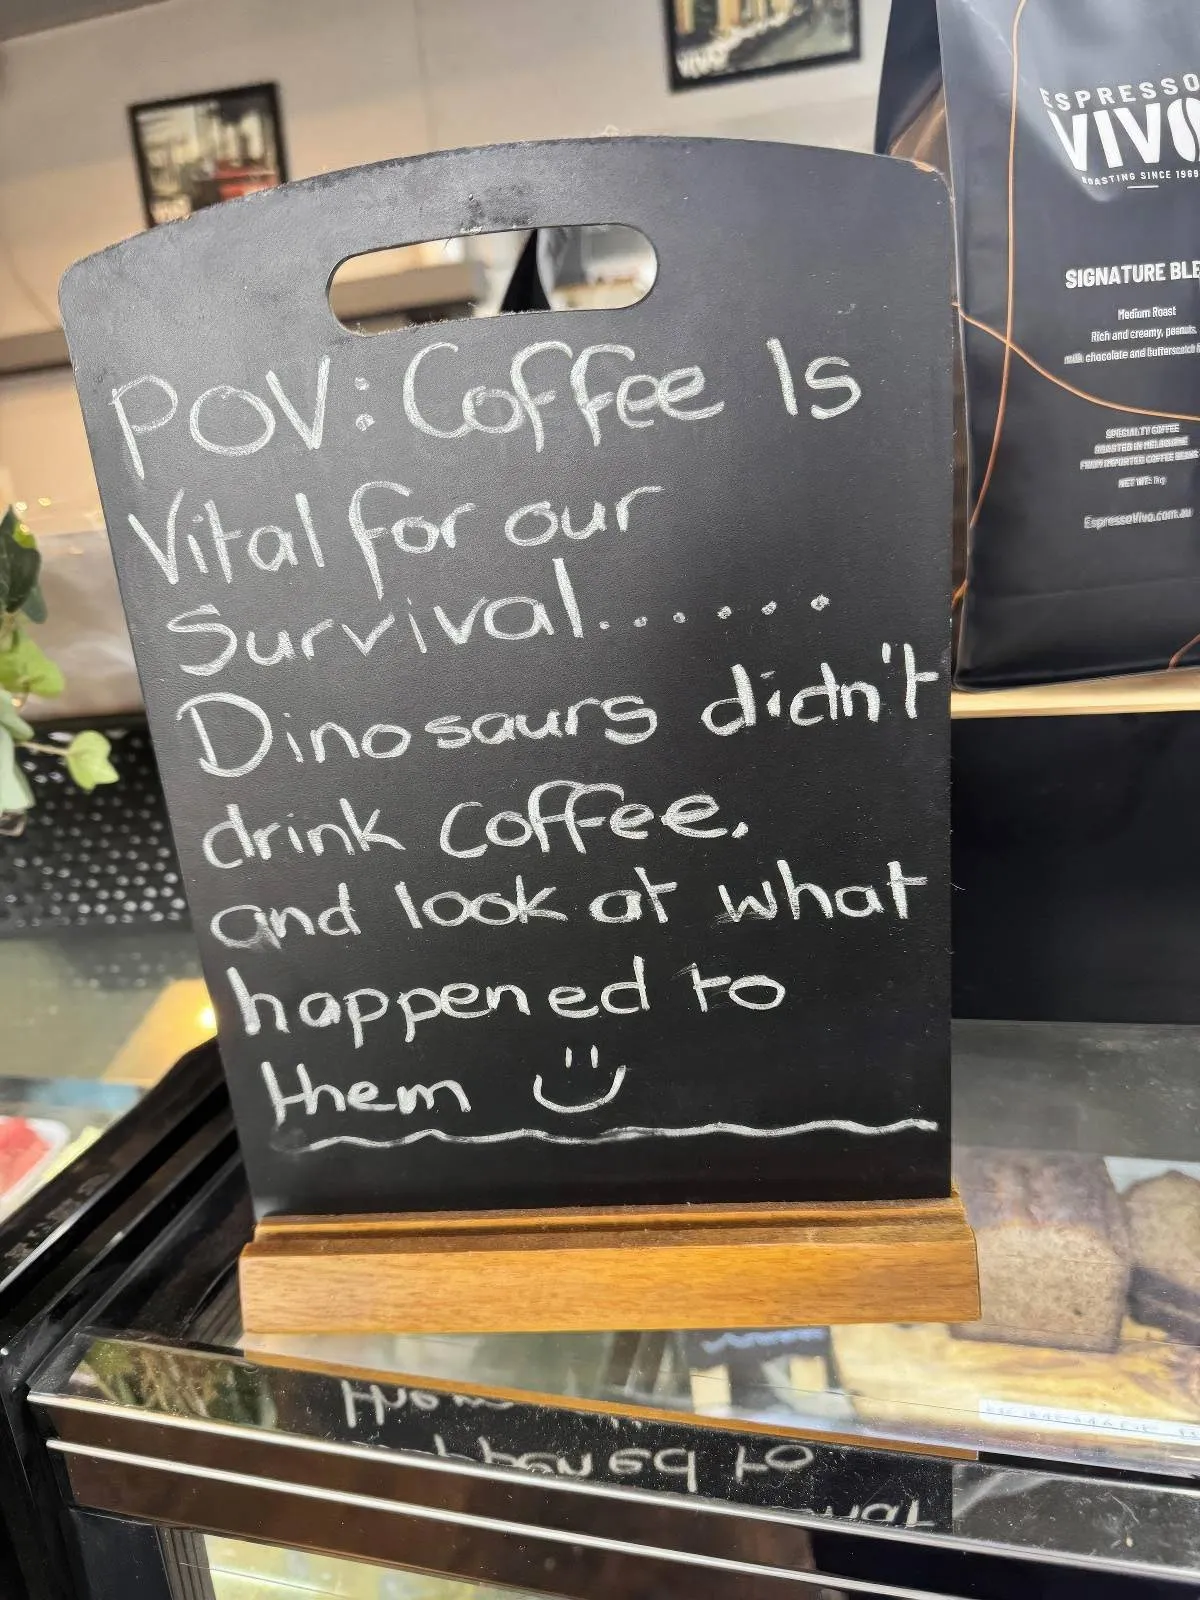 POV: Coffee Is
Vital for our
Survival.......
Dinosaurs didn't
drink coffee,
and look at what
happened to
them
ESPRESSO
VIVO
ROASTING SINCE 1989
SIGNATURE BLE
Medium Roast
Rich and creamy, peanuts,
milk chocolate and butterscotch
SPECIALTY COFFEE
ROASTED IN MELBOURNE
FROM IMPORTED COFFEE BEANS
NET WT: 1kg
EspressoVivo.com.au